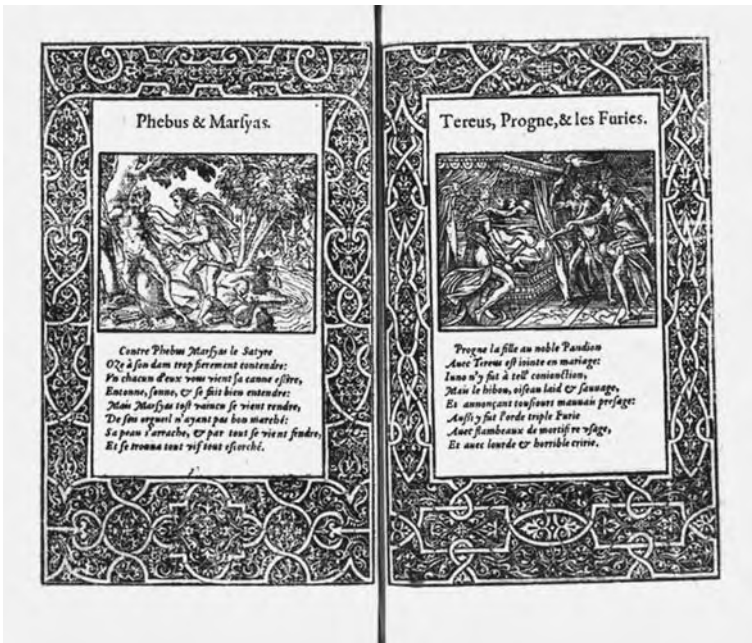 Phebus & Marſyas.
Contre Phebus Marſyas le Satyre
OZe à ſon dam trop fierement contendre:
Vn chacun d'eux vous vient ſa canne eſlire,
Entonne, ſonne, & ſe fait bien entendre:
Mais Marſyas toſt vaincu ſe vient rendre,
De ſon orgueil n'ayant pas bon marché:
Sa peau s'arrache, & par tout ſe vient fendre,
Et ſe trouua tout vif tout eſcorché.
Tereus, Progne, & les Furies.
Progne la fille au noble Pandion
Auec Tereus eſt iointe en mariage:
Iuno n'y fut à tell' conionction,
Mais le hibou, oiſeau laid & ſauuage,
Et annonçant touſiours mauuais preſage:
Auſſi y fut l'orde triple Furie
Auec flambeaux de mortifere vſage,
Et auec lourde & horrible cririe.